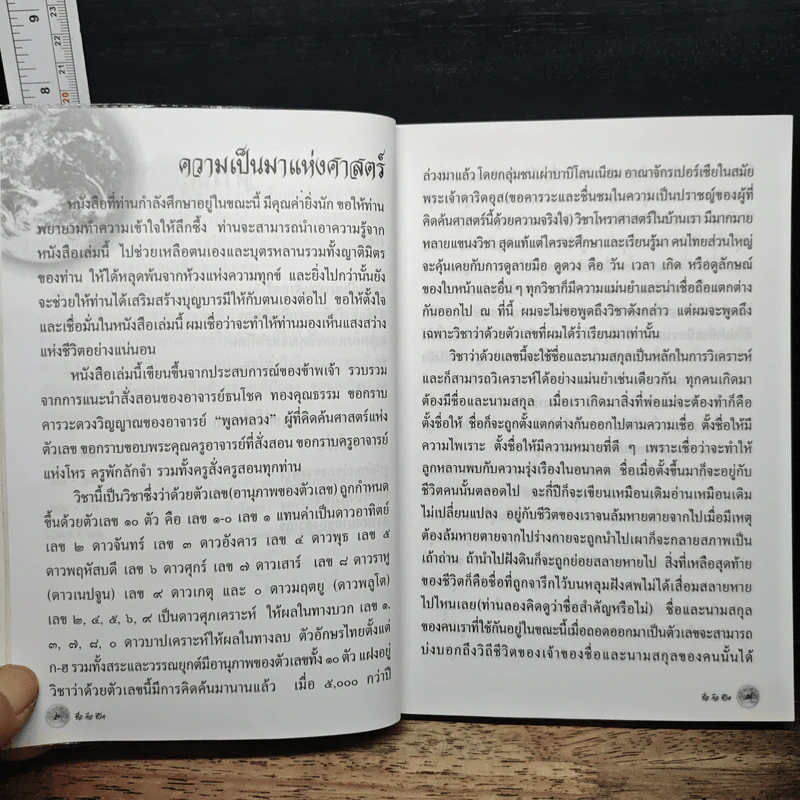 9
8
23
22
21
20
ความเป็นมาแห่งศาสตร์
หนังสือที่ท่านกำลังศึกษาอยู่ในขณะนี้ มีคุณค่ายิ่งนัก ขอให้ท่าน
พยายามทำความเข้าใจให้ลึกซึ้ง ท่านจะสามารถนำเอาความรู้จาก
หนังสือเล่มนี้ ไปช่วยเหลือตนเองและบุตรหลานรวมทั้งญาติมิตร
ของท่าน ให้ได้หลุดพ้นจากห้วงแห่งความทุกข์ และยิ่งไปกว่านั้นยัง
จะช่วยให้ท่านได้เสริมสร้างบุญบารมีให้กับตนเองต่อไป ขอให้ตั้งใจ
และเชื่อมั่นในหนังสือเล่มนี้ ผมเชื่อว่าจะทำให้ท่านมองเห็นแสงสว่าง
แห่งชีวิตอย่างแน่นอน
หนังสือเล่มนี้เขียนขึ้นจากประสบการณ์ของข้าพเจ้า รวบรวม
จากการแนะนำสั่งสอนของอาจารย์ธนโชค ทองคุณธรรม ขอกราบ
คารวะดวงวิญญาณของอาจารย์ “พูลหลวง” ผู้ที่คิดค้นศาสตร์แห่ง
ตัวเลข ขอกราบขอบพระคุณครูอาจารย์ที่สั่งสอน ขอกราบครูอาจารย์
แห่งโหร ครูพักลักจำ รวมทั้งครูสั่งครูสอนทุกท่าน
วิชานี้เป็นวิชาซึ่งว่าด้วยตัวเลข(อานุภาพของตัวเลข) ถูกกำหนด
ขึ้นด้วยตัวเลข ๑๐ ตัว คือ เลข ๑-๐ เลข ๑ แทนค่าเป็นดาวอาทิตย์
เลข ๒ ดาวจันทร์ เลข ๓ ดาวอังคาร เลข ๔ ดาวพุธ เลข ๕
ดาวพฤหัสบดี เลข ๖ ดาวศุกร์ เลข ๗ ดาวเสาร์ เลข ๘ ดาวราหู
(ดาวเนปจูน) เลข ๙ ดาวเกตุ และ ๐ ดาวมฤตยู (ดาวพลูโต)
เลข ๒, ๔, ๕, ๖, ๙ เป็นดาวศุภเคราะห์ ให้ผลในทางบวก เลข ๑,
๓, ๗, ๘, ๐ ดาวบาปเคราะห์ให้ผลในทางลบ ตัวอักษรไทยตั้งแต่
ก-ฮ รวมทั้งสระและวรรณยุกต์มีอานุภาพของตัวเลขทั้ง ๑๐ ตัว แฝงอยู่
วิชาว่าด้วยตัวเลขนี้มีการคิดค้นมานานแล้ว เมื่อ ๕,๐๐๐ กว่าปี
ชื่อ คือ ชีวิต
ล่วงมาแล้ว โดยกลุ่มชนเผ่าบาบิโลนเนียม อาณาจักรเปอร์เซียในสมัย
พระเจ้าดาริดอุส(ขอคารวะและชื่นชมในความเป็นปราชญ์ของผู้ที่
คิดค้นศาสตร์นี้ด้วยความจริงใจ)วิชาโหราศาสตร์ในบ้านเรา มีมากมาย
หลายแขนงวิชา สุดแท้แต่ใครจะศึกษาและเรียนรู้มา คนไทยส่วนใหญ่
จะคุ้นเคยกับการดูลายมือ ดูดวง คือ วัน เวลา เกิด หรือดูลักษณ์
ของใบหน้าและอื่น ๆ ทุกวิชาก็มีความแม่นยำและน่าเชื่อถือแตกต่าง
กันออกไป ณ ที่นี้ ผมจะไม่ขอพูดถึงวิชาดังกล่าว แต่ผมจะพูดถึง
เฉพาะวิชาว่าด้วยตัวเลขที่ผมได้ร่ำเรียนมาเท่านั้น
วิชาว่าด้วยเลขนี้จะใช้ชื่อและนามสกุลเป็นหลักในการวิเคราะห์
และก็สามารถวิเคราะห์ได้อย่างแม่นยำเช่นเดียวกัน ทุกคนเกิดมา
ต้องมีชื่อและนามสกุล เมื่อเราเกิดมาสิ่งที่พ่อแม่จะต้องทำก็คือ
ตั้งชื่อให้ ชื่อก็จะถูกตั้งแตกต่างกันออกไปตามความเชื่อ ตั้งชื่อให้มี
ความไพเราะ ตั้งชื่อให้มีความหมายที่ดี ๆ เพราะเชื่อว่าจะทำให้
ลูกหลานพบกับความรุ่งเรืองในอนาคต ชื่อเมื่อตั้งขึ้นมาก็จะอยู่กับ
ชีวิตคนนั้นตลอดไป จะกี่ปีก็จะเขียนเหมือนเดิมอ่านเหมือนเดิม
ไม่เปลี่ยนแปลง อยู่กับชีวิตของเราจนล้มหายตายจากไปเมื่อมีเหตุ
ต้องล้มหายตายจากไปร่างกายจะถูกนำไปเผาก็จะกลายสภาพเป็น
เถ้าถ่าน ถ้านำไปฝังดินก็จะถูกย่อยสลายหายไป สิ่งที่เหลือสุดท้าย
ของชีวิตก็คือชื่อที่ถูกจารึกไว้บนหลุมฝังศพไม่ได้เสื่อมสลายหาย
ไปไหนเลย(ท่านลองคิดดูว่าชื่อสำคัญหรือไม่) ชื่อและนามสกุล
ของคนเราที่ใช้กันอยู่ในขณะนี้เมื่อถอดออกมาเป็นตัวเลขจะสามารถ
บ่งบอกถึงวิถีชีวิตของเจ้าของชื่อและนามสกุลของคนนั้นได้
ชื่อ คือ ชีวิต